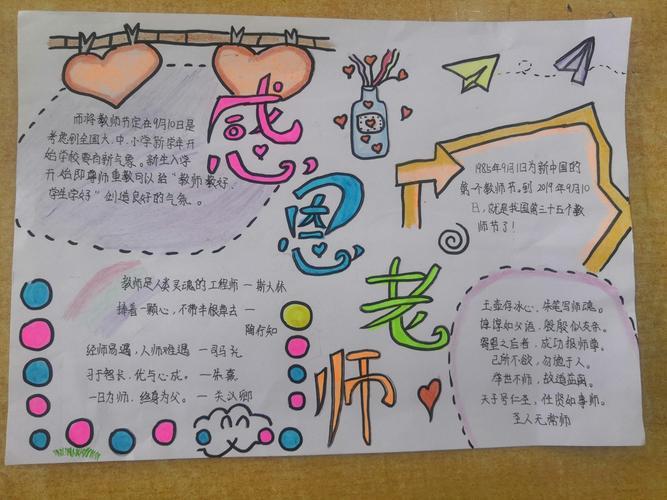 感恩老师
而将教师节定在9月10日是
考虑到全国大、中、小学新学年开
始学校要有新气象。新生入学
开始即尊师重教可以给“教师教好、
学生学好”创造良好的气氛。
1985年9月1日为新中国的
第一个教师节。到2019年9月10
日，就是我国第三十五个教
师节了！
教师是人类灵魂的工程师 — 斯大林
捧着一颗心，不带半根草去 —
陶行知
经师易遇，人师难遇 — 司马光
习于智长，优与心成。— 朱熹
一日为师，终身为父。— 关汉卿
玉壶存冰心，朱笔写师魂。
谆谆如父语，殷殷似友亲。
成功报师尊。
己所不欲，勿施于人。
举世不师，故道益离。
天子号仁圣，任贤如事师。
至人无常师